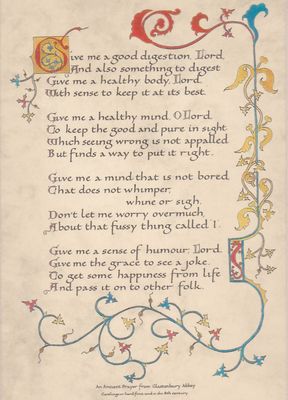 Give me a good digestion, Lord,
And also something to digest
Give me a healthy body, Lord
With sense to keep it at its best.
Give me a healthy mind, O Lord
To keep the good and pure in sight
Which seeing wrong is not appalled
But finds a way to put it right.
Give me a mind that is not bored
That does not whimper,
whine or sigh.
Don't let me worry overmuch
About that fussy thing called 'I'.
Give me a sense of humour, Lord.
Give me the grace to see a joke.
To get some happiness from life
And pass it on to other folk.
An Ancient Prayer from Glastonbury Abbey
Carolingian hand first used in the 8th century